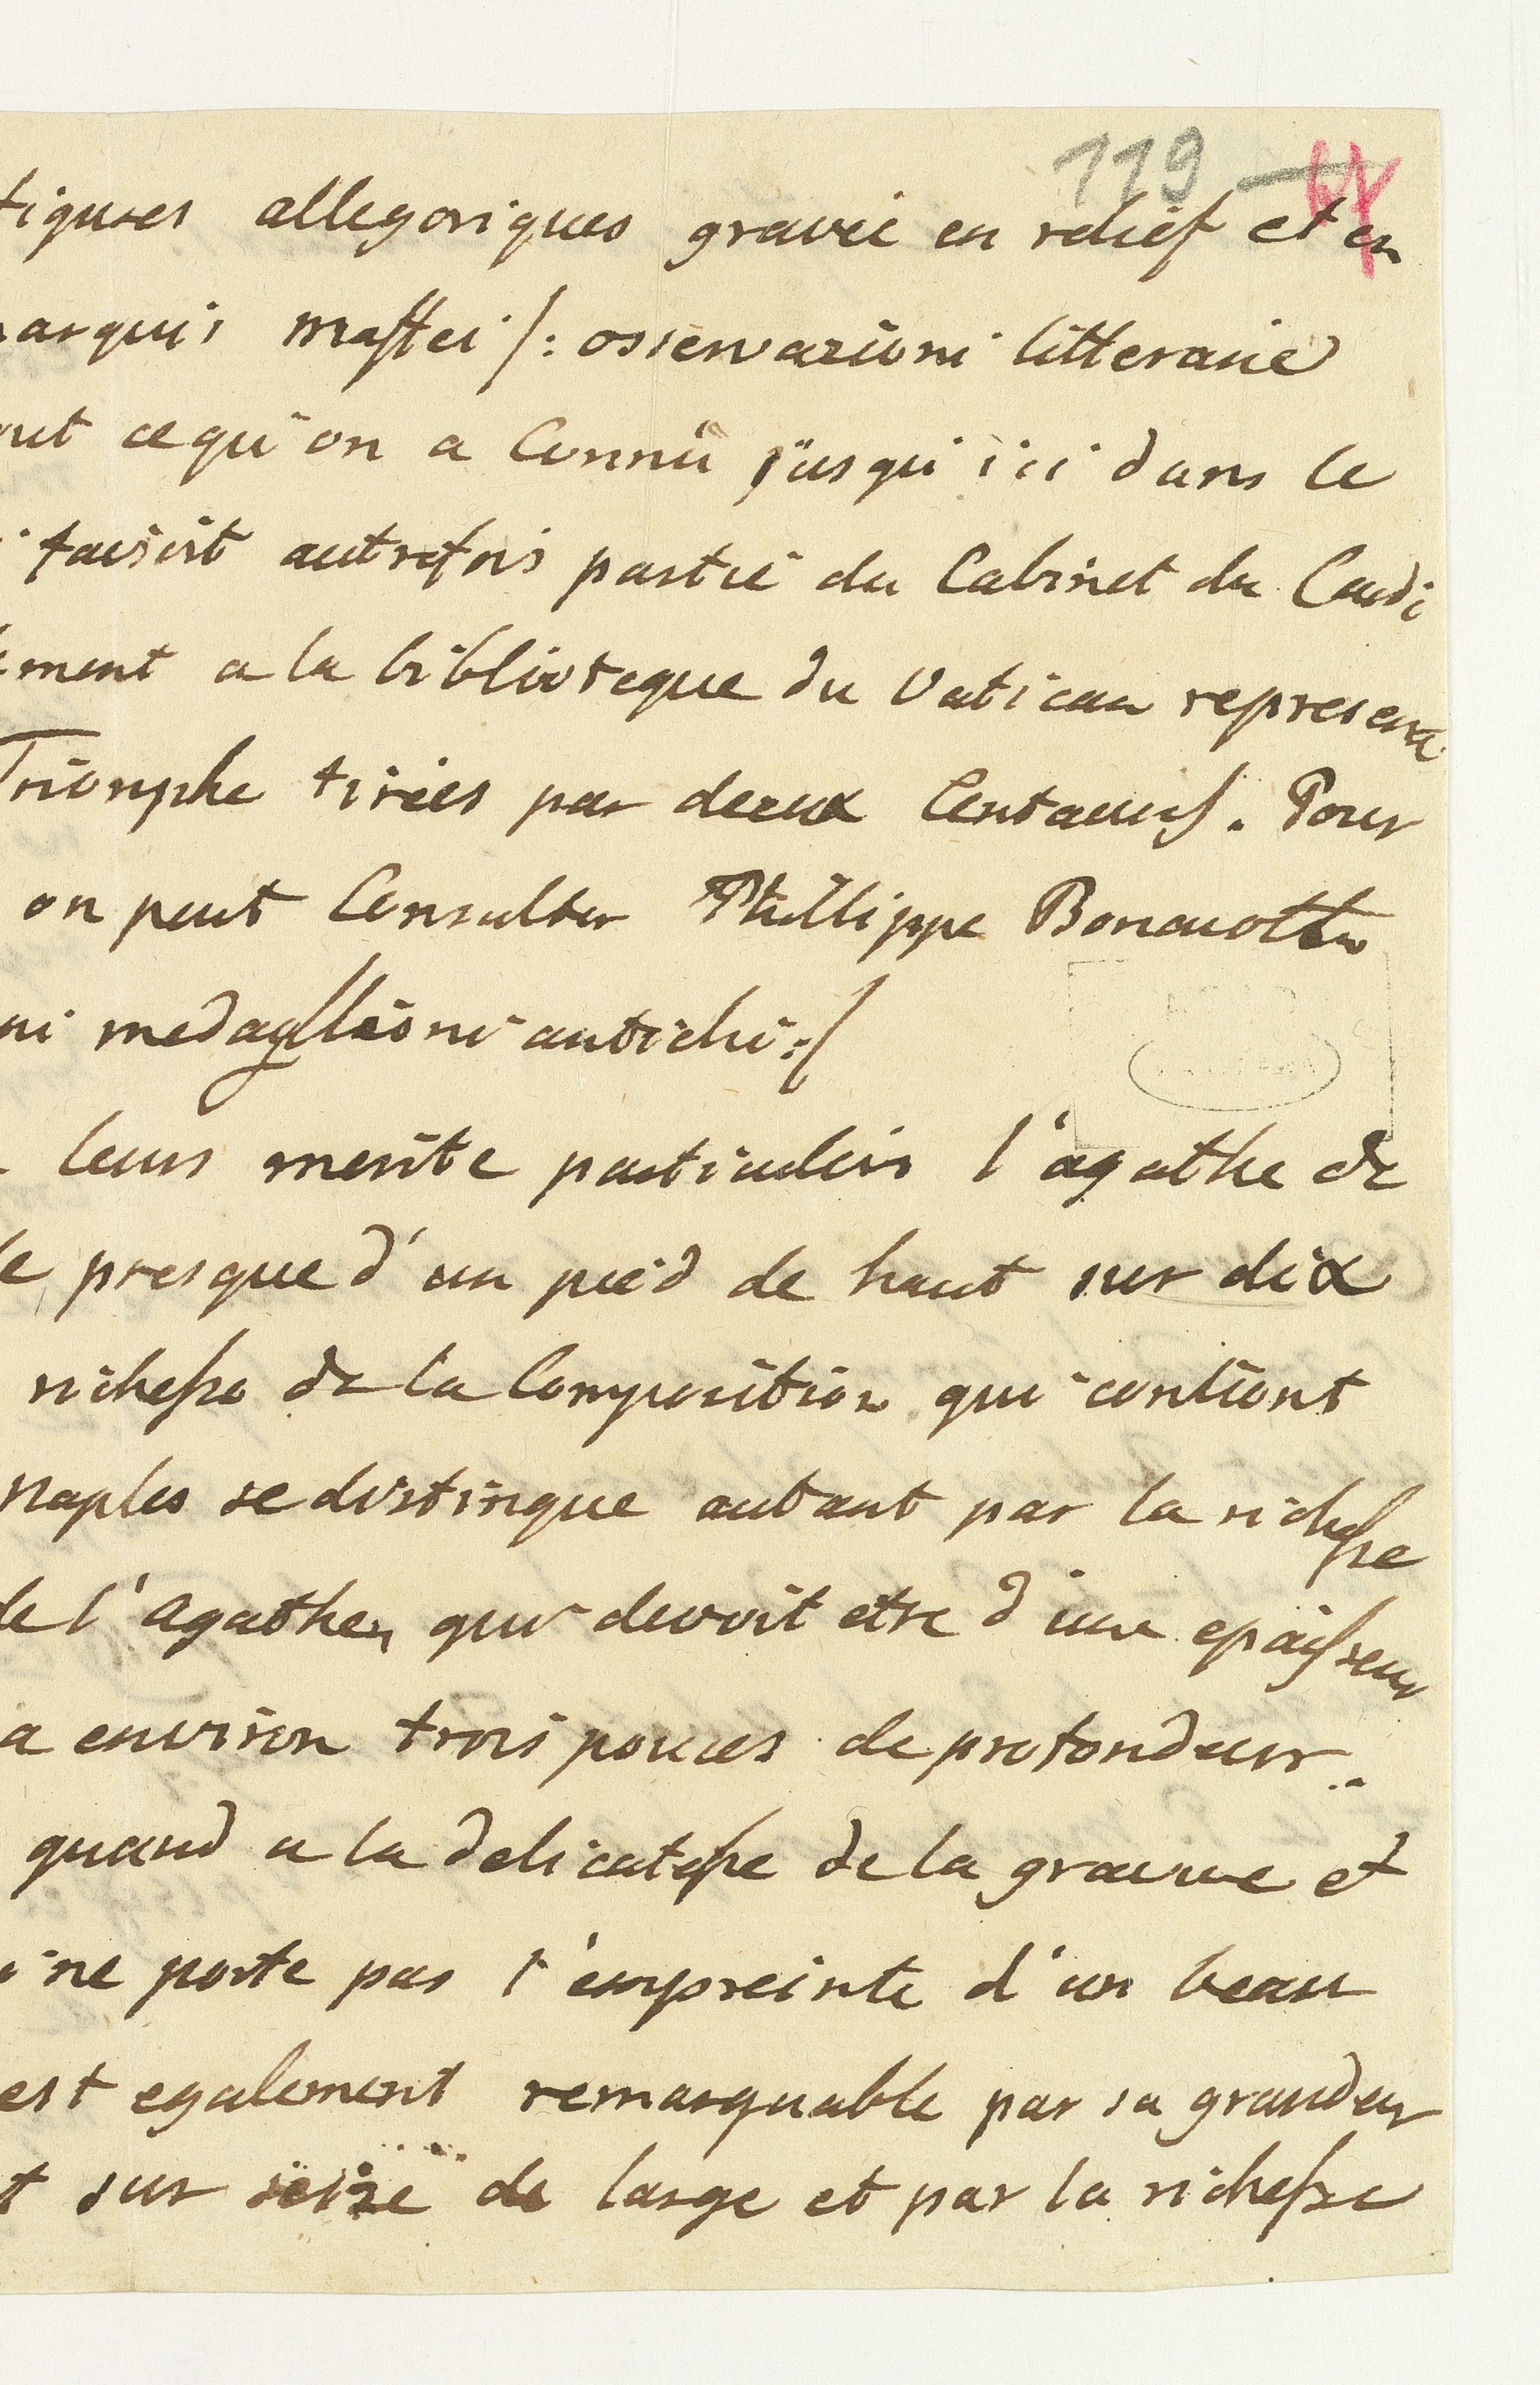 119 44
figures allegoriques gravée en relief et en
arquis maffei /: osservazioni litterarie
out ce qu'on a Connû jusqu'ici dans le
faisoit autrefois partie du Cabinet du Cardi
ement a la biblioteque du Vatican represen
Triomphe tirées par deux Centaures. Pour
on peut Consulter Phillippe Bonarotti
ni medaglioni antichi :/
leurs merite particuliers l'agathe de
le presque d'un pied de haut sur dix
richesse de la Composition qui contient
Naples se distingue autant par la richesse
de l'agathe, qui devoit etre d'une epaisseur
a environ trois pouces de profondeur..
quand a la delicatesse de la gravure et
ne porte pas l'empreinte d'un beau
est egalement remarquable par sa grandeur
t sur seize de large et par la richesse